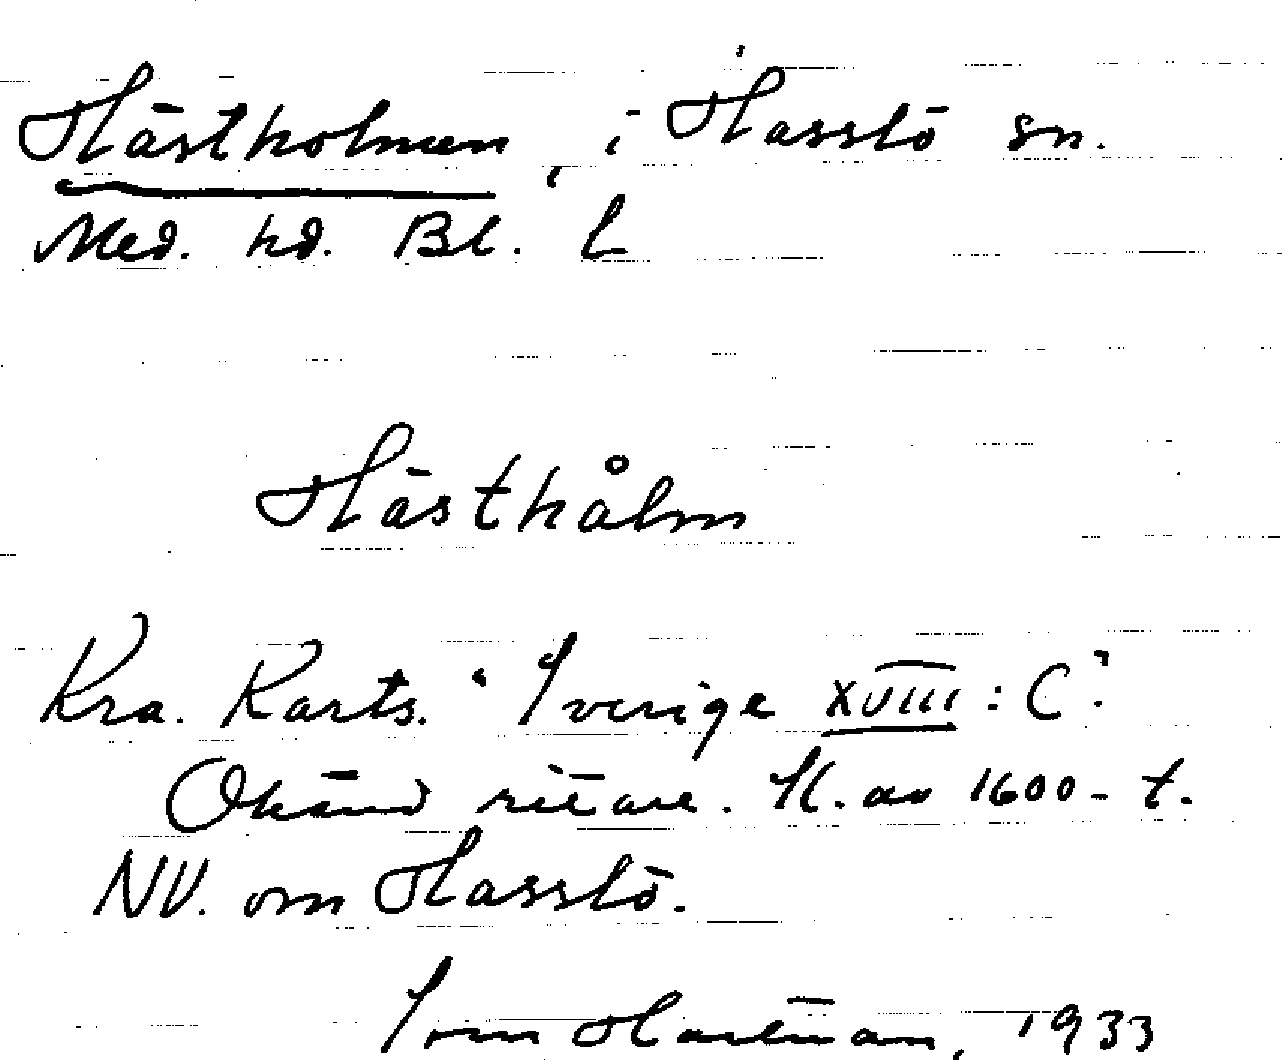 Hästholmen, i Hasslö sn.
Med. hd. Bl. L
Hästhålm
Kra. Karts. "Sverige XVIII: C"
Okänd ritare. Sl. av 1600-t.
NV. om Hasslö.
Hartman, 1933